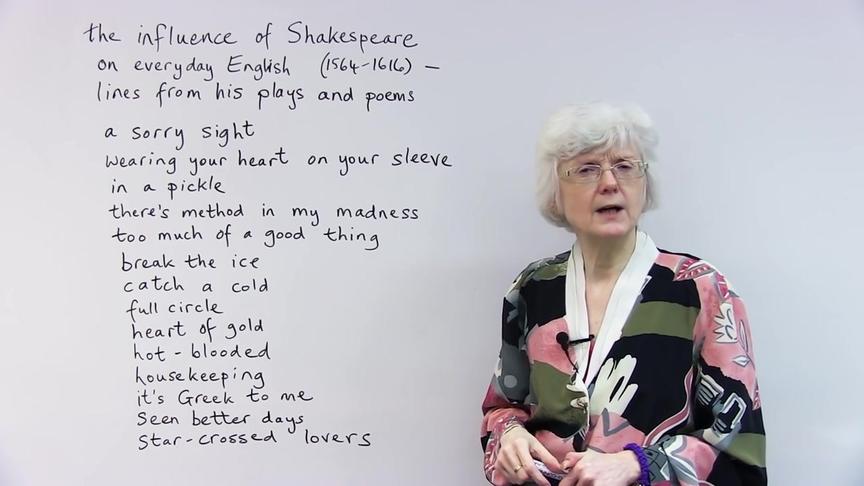 the influence of Shakespeare
on everyday English (1564-1616) –
lines from his plays and poems
a sorry sight
wearing your heart on your sleeve
in a pickle
there's method in my madness
too much of a good thing
break the ice
catch a cold
full circle
heart of gold
hot-blooded
housekeeping
it's Greek to me
seen better days
star-crossed lovers